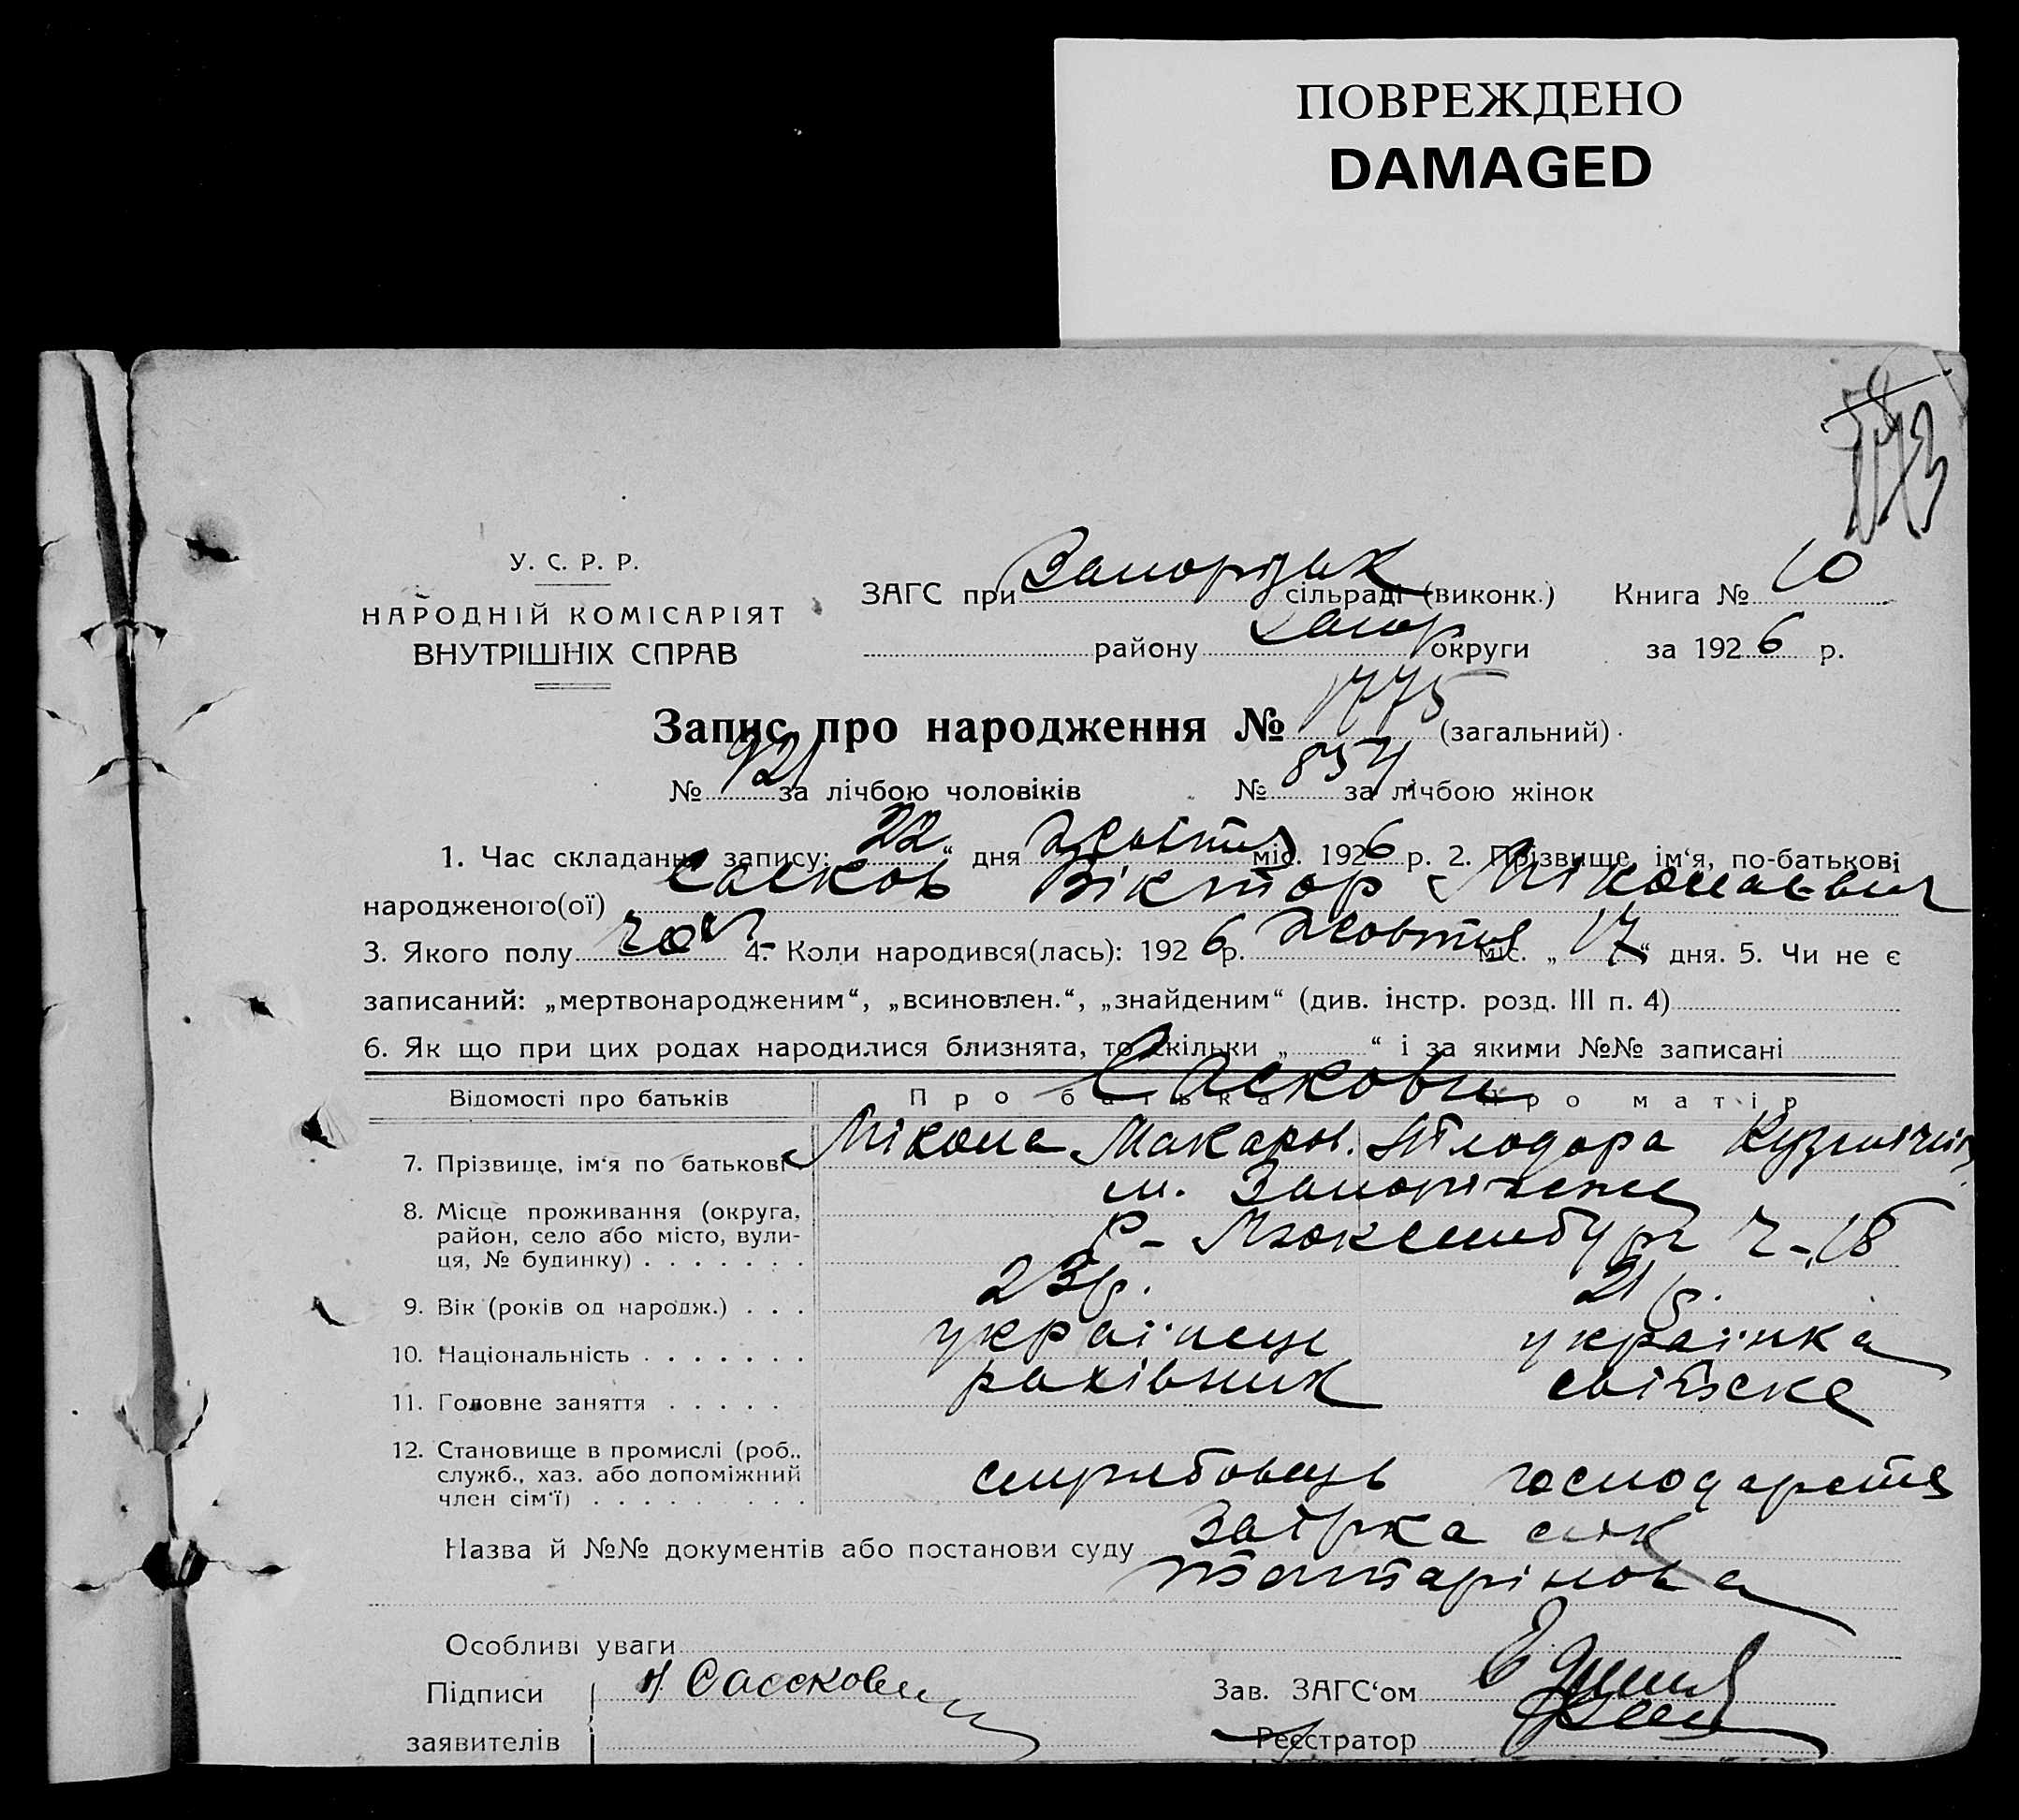 ПОВРЕЖДЕНО
DAMAGED
У. С. Р. Р.
НАРОДНІЙ КОМІСАРІЯТ
ВНУТРІШНІХ СПРАВ
ЗАГС при Запорізьк сільраді (виконк.) Книга № 10
району Запор округи за 1926 р.
Запис про народження № 1775 (загальний)
№ 921 за лічбою чоловіків № 854 за лічбою жінок
1. Час складання запису: 22 “ дня Жовтня міс. 1926 р. 2. Прізвище, ім‘я, по-батькові
народженого(ої) Сасков Віктор Миколаєвич
3. Якого полу чол 4. Коли народився(лась): 1926 р. Жовтня міс. „ 17 “ дня. 5. Чи не є
записаний: „мертвонародженим“, „всиновлен.“, „знайденим“ (див. інстр. розд. III п. 4)
6. Як що при цих родах народилися близнята, то скільки „ “ і за якими №№ записані
Відомості про батьків Про батька Про матір
Саскови
7. Прізвище, ім‘я по батькові Микола Макаров.
8. Місце проживання (округа, м. Запоріжжє
район, село або місто, вули-
ця, № будинку) Р- Люксембург 18
9. Вік (років од народж.) 23 р. 21 р.
10. Національність українець українка
11. Головне заняття рахівник хатнє
12. Становище в промислі (роб.,
служб., хаз. або допоміжний
член сім‘ї) службовець господарство
Назва й №№ документів або постанови суду
Особливі уваги
Підписи
заявителів
Зав. ЗАГС‘ом
Реєстратор